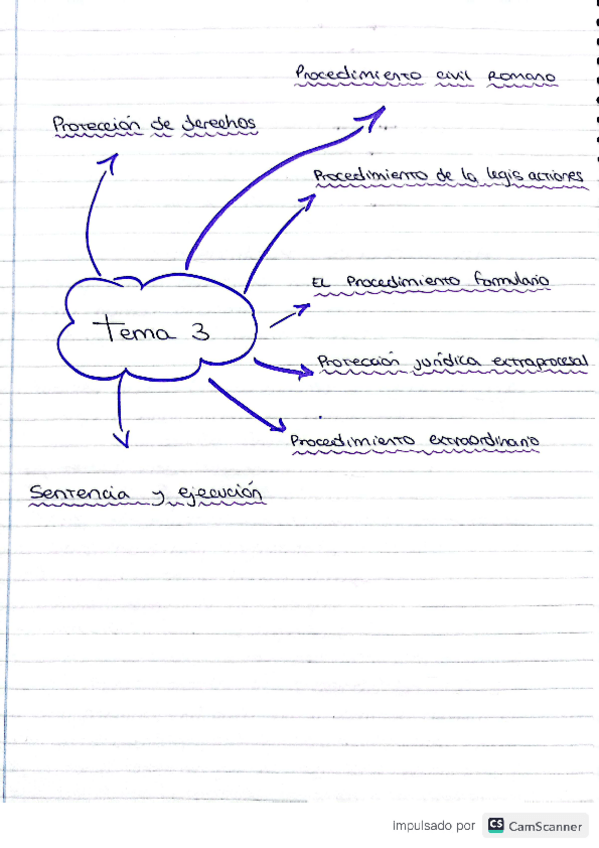 Procedimiento civil Romano
Protección de derechos
Procedimiento de la legis actiones
El Procedimiento formulario
Tema 3
Protección jurídica extraprocesal
Procedimiento extraordinario
Sentencia y ejecución
Impulsado por CS CamScanner